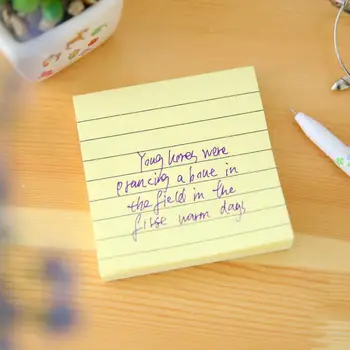 Young horses were
prancing about in
the field in the
first warm days